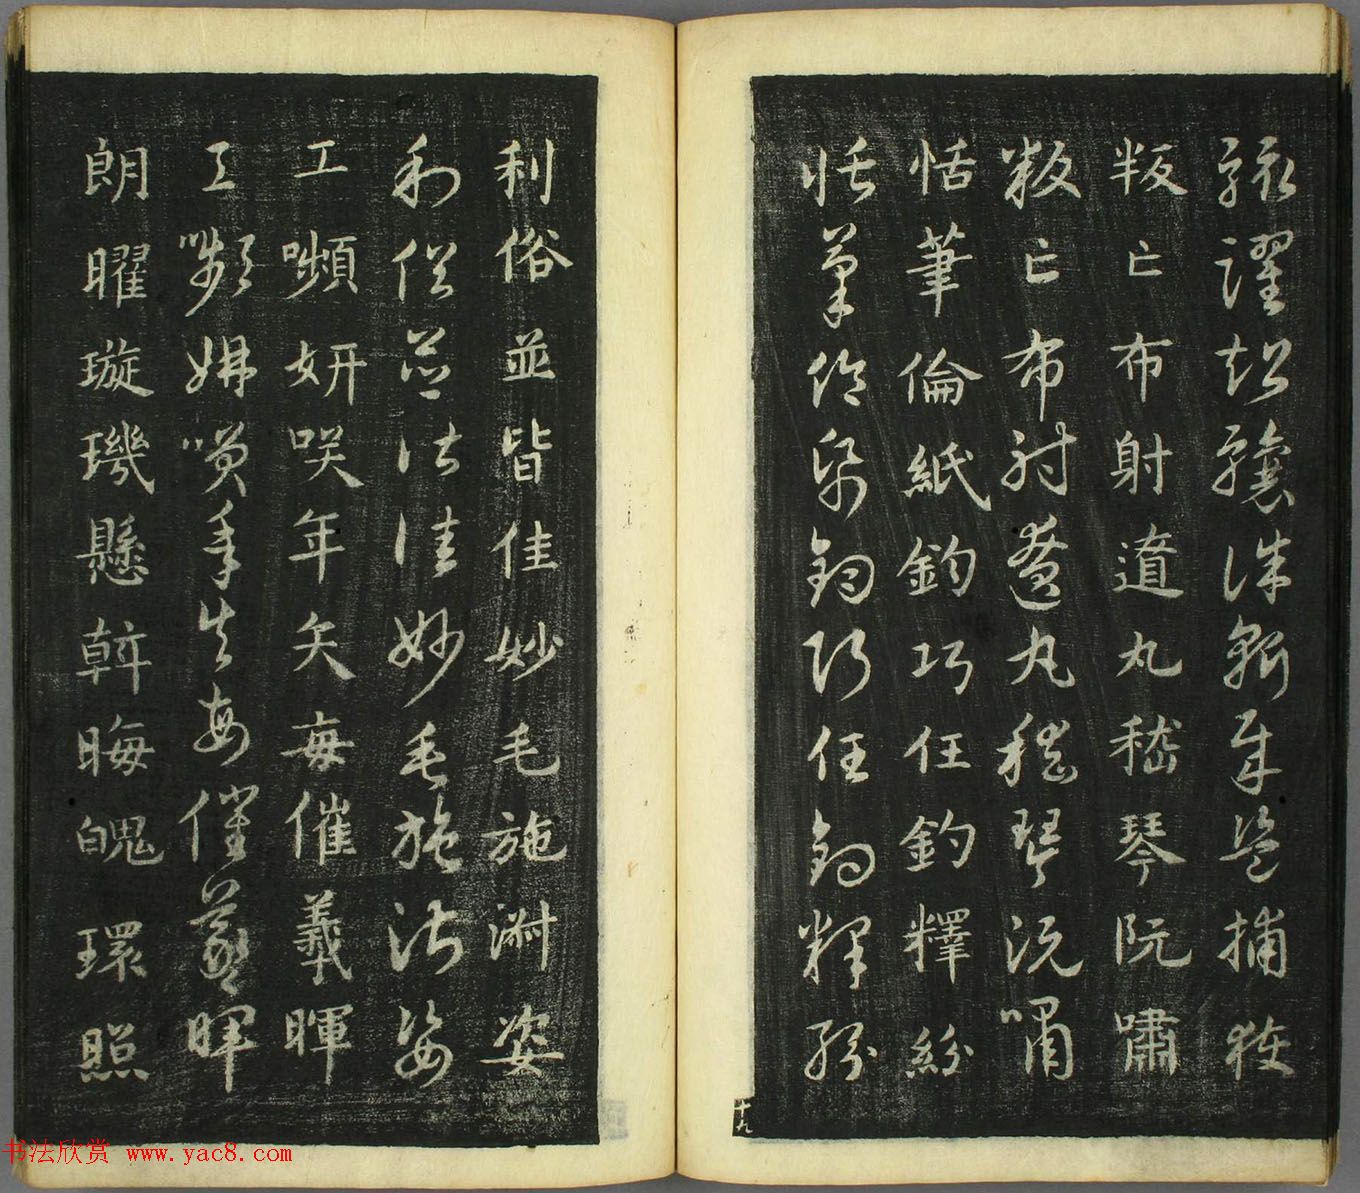 駭躍超驤誅斬賊盜捕獲
叛亡布射遼丸嵇琴阮嘯
叛亡布射遼丸嵇琴阮嘯
恬筆倫紙鈞巧任釣釋紛
恬筆倫紙鈞巧任釣釋紛
十九
利俗並皆佳妙毛施淑姿
利俗並皆佳妙毛施淑姿
工嚬妍咲年矢每催羲暉
工嚬妍咲年矢每催羲暉
朗曜璇璣懸斡晦魄環照
书法欣赏 www.yac8.com